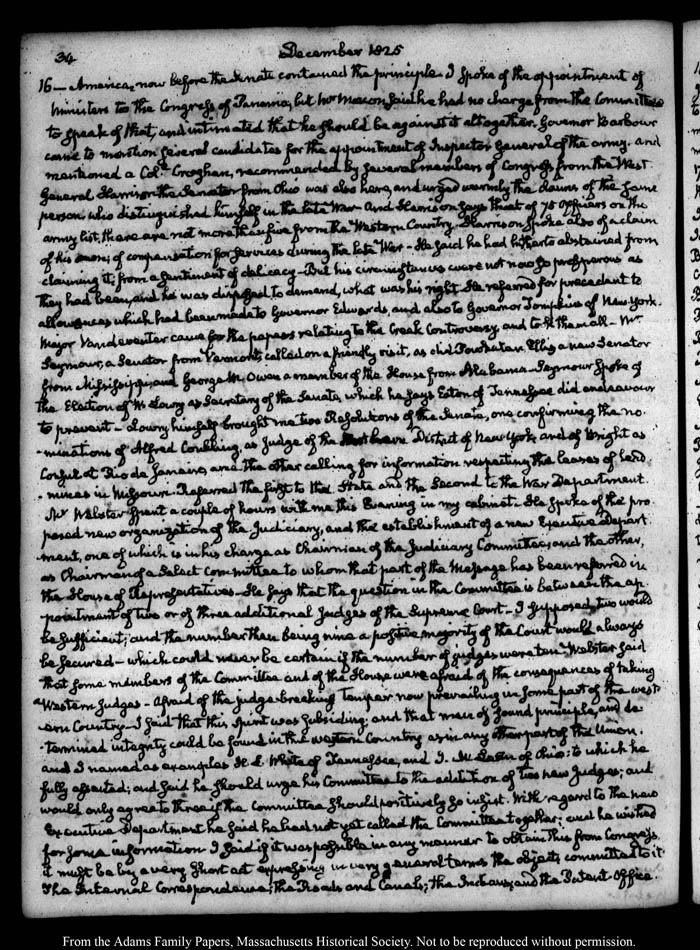 34
December 1825
16 — America, now before the Senate contained the principle. I spoke of the appointment of
Ministers to the Congress of Panama, but Mr Macon said he had no charge from the Committee
to speak of that, and intimated that he should be against it altogether. Governor Barbour
came to mention several candidates for the appointment of Inspector General of the army. and
mentioned a Coll. Croghan, recommended by several members of Congress from the West.
General Harrison the Senator from Ohio was also here, and urged warmly the claims of the same
person, who distinguished himself in the late War. And Harrison says that of 75 Officers on the
army list, there are not more than five from the Western Country. Harrison spoke also of a claim
of his own, of compensation for services during the late War — He said he had hitherto abstained from
claiming it, from a sentiment of delicacy — But his circumstances were not now so prosperous as
they had been, and he was disposed to demand, what was his right. He referred for precedent to
allowances which had been made to Governor Edwards, and also to Governor Tompkins of New York.
Major Vandeventer came for the papers relating to the Creek Controversy, and took them all — Mr
Seymour, a Senator from Vermont, called on a friendly visit, as did Powhatan Ellis a new Senator
from Mississippi, and George W. Owen a member of the House from Alabama. Seymour spoke of
the Election of W. Lowry as Secretary of the Senate, which he says Eaton of Tennessee did endeavour
to prevent — Lowry himself brought me two Resolutions of the Senate, one confirming the no-
-minations of Alfred Conkling, as Judge of the Northern District of New York and of Wright as
Consul at Rio de Janeiro, and the other calling for information respecting the leases of lead
mines in Missouri. Referred the first to the State and the Second to the War Department.
Mr Webster spent a couple of hours with me this Evening in my cabinet. He spoke of the pro
posed new organization of the Judiciary, and the establishment of a new Executive Depart
ment, one of which is in his charge as Chairman of the Judiciary Committee, and the other,
as Chairman of a Select Committee to whom that part of the Message has been referred in
the House of Representatives — He says that the question in the Committee is between the ap-
-pointment of two or of three additional Judges of the Supreme Court — I supposed two would
be sufficient; and the number then being nine a positive majority of the Court would always
be secured — which could never be certain if the number of judges were ten. Webster said
that some members of the Committee and of the House were afraid of the consequences of taking
Western Judges — Afraid of the judge-breaking temper now prevailing in some part of the west-
ern Country — I said that this spirit was subsiding; and that men of sound principle, and de-
-termined integrity could be found in the western Country as in any other part of the Union.
and I named as examples H. L. White of Tennessee, and J. McLean of Ohio; to which he
fully assented; and said he should urge his Committee to the addition of two new Judges; and
would only agree to three if the Committee should positively so insist. With regard to the new
Executive Department he said he had not yet called the Committee together; and he wished
for some information. I said if it was possible in any manner to obtain this from Congress,
it must be by a very short act expressing in very general terms the objects committed to it
The Internal Correspondence; the Roads and Canals; the Indians; and the Patent Office.
From the Adams Family Papers, Massachusetts Historical Society. Not to be reproduced without permission.